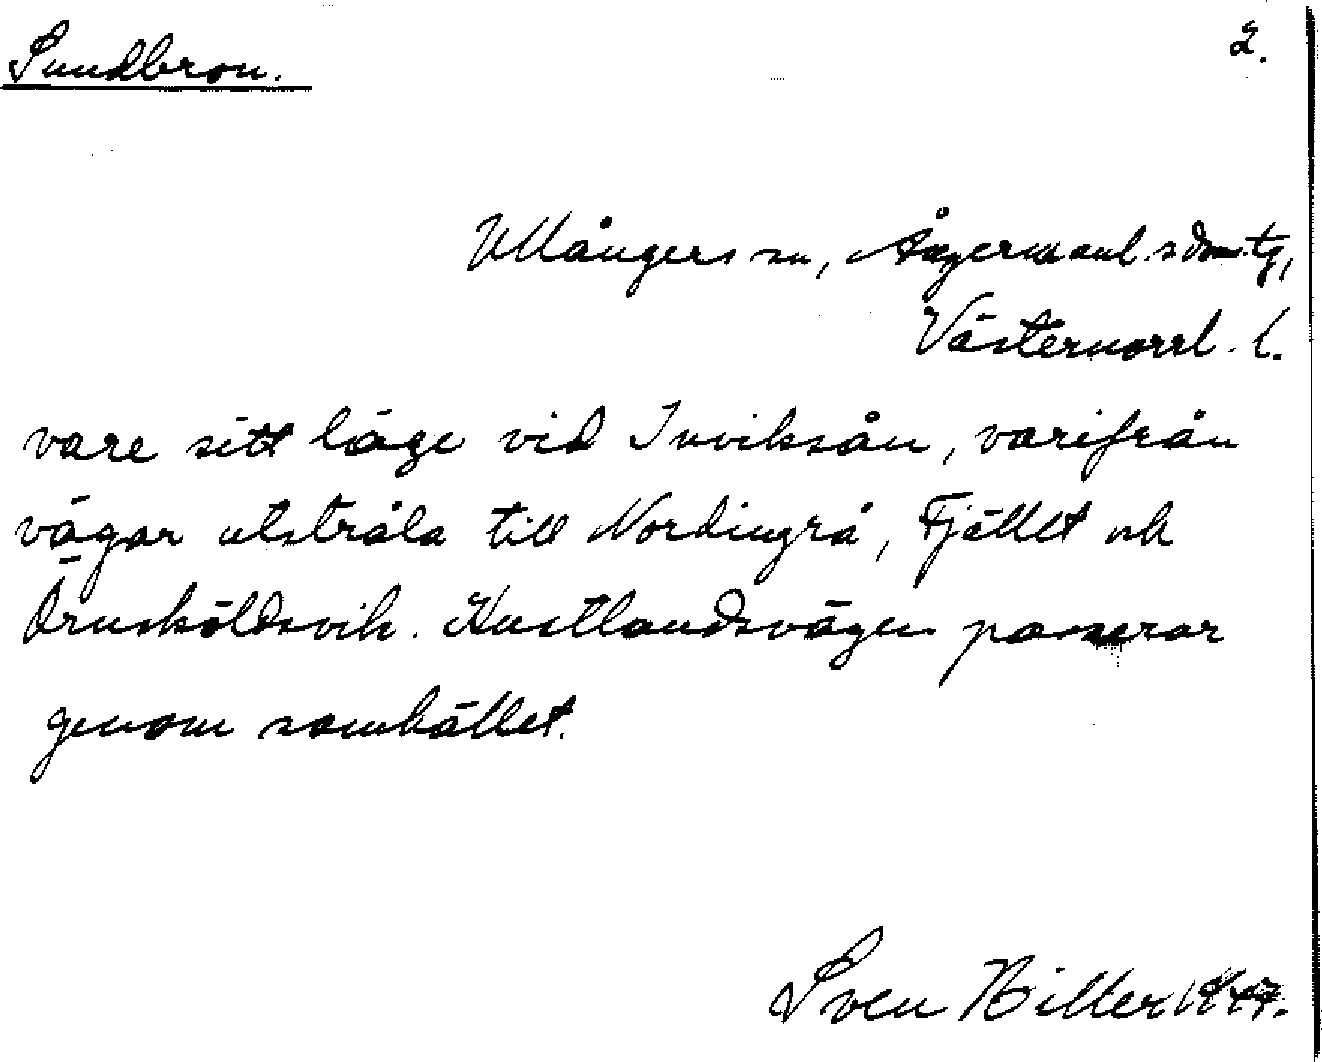 Sundbron.
2.
Ullångers sn, Ångermanl. s dom. tg,
Västernorrl. l.
vare sitt läge vid Inviksån, varifrån
vägar utstråla till Nordingrå, Fjället och
Örnsköldsvik. Kustlandsvägen passerar
genom samhället.
Sven Hiller 1947.